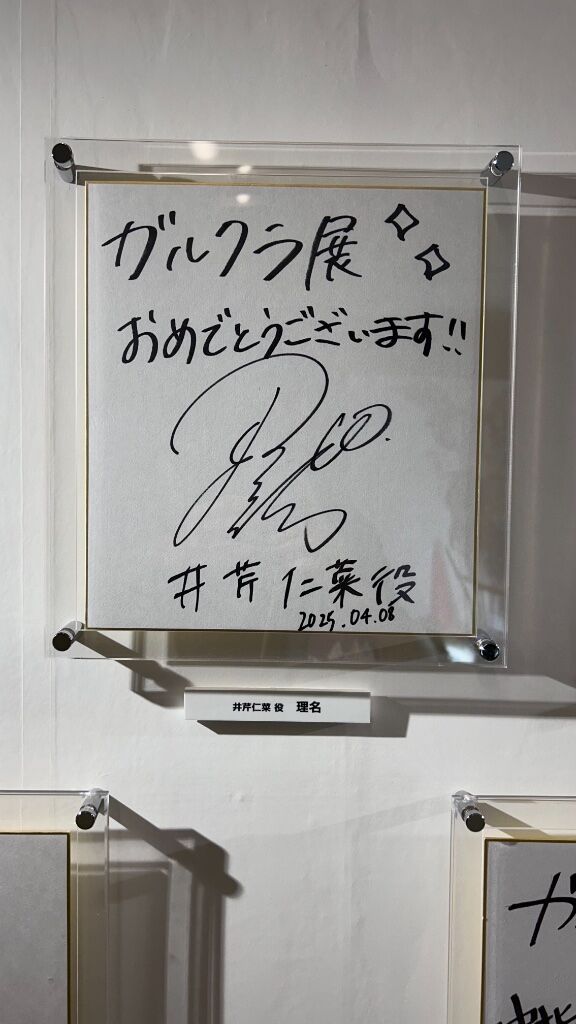 ガルクラ展
おめでとうございます!!
井芹仁菜役
2025.04.08
井芹仁菜 役 理名
ガ